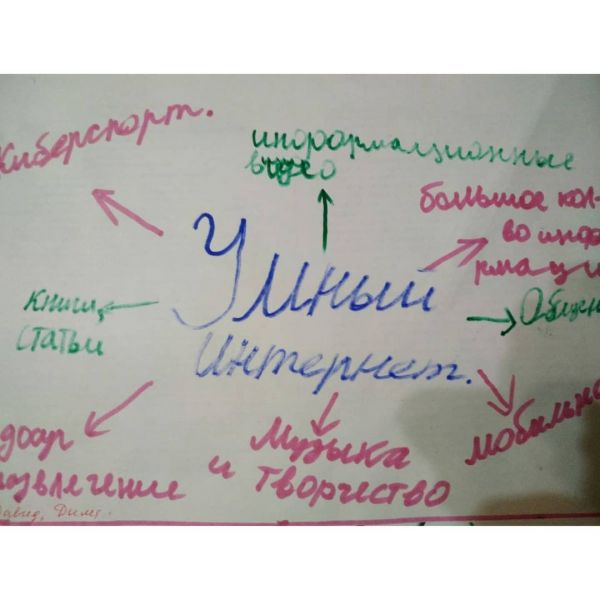 Киберспорт.
информационные
видео
большое кол-
во инфо
рмаци
Умный
Интернет.
книги,
статьи
Общен
мобильно
развлечение
Музыка
и творчество
Давид, Дима.